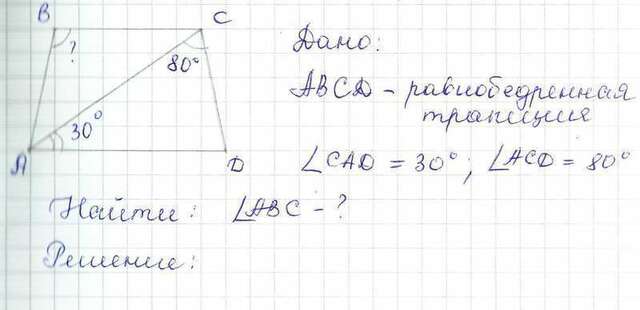 B
C
?
80°
30°
A
D
Дано:
ABCD – равнобедренная
трапеция
∠CAD = 30°; ∠ACD = 80°
Найти: ∠ABC – ?
Решение: